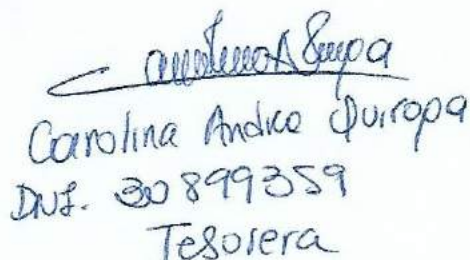 Carolina Andrea Quiroga
DNI. 30899359
Tesorera